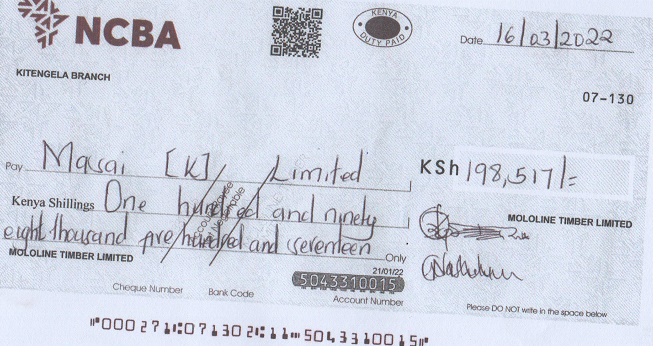 NCBA
KENYA
DUTY PAID
Date 16/03/2022
KITENGELA BRANCH
07-130
Pay Masai [K] Limited
KSh 198,517/=
Kenya Shillings One hundred and ninety
eight thousand five hundred and seventeen Only
MOLOLINE TIMBER LIMITED
MOLOLINE TIMBER LIMITED
21/01/22
5043310015
Cheque Number Bank Code Account Number
Please DO NOT write in the space below
⑈000271⑆071302⑆11⑉5043310015⑈